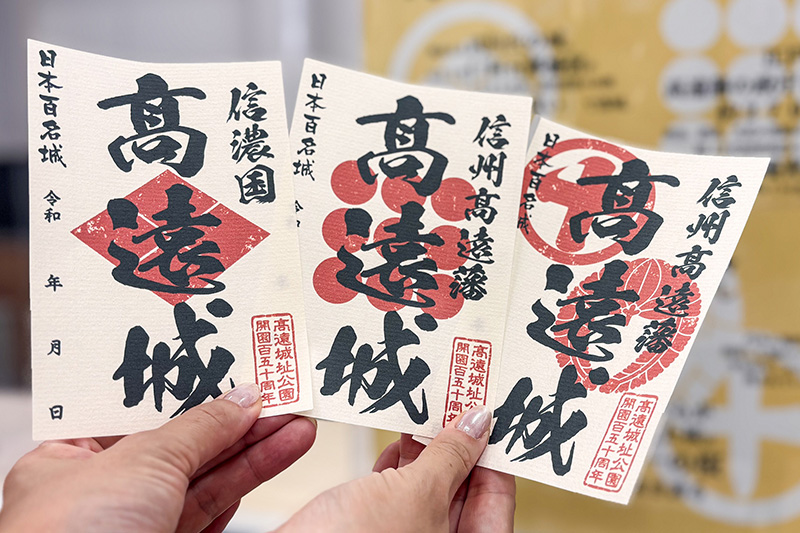 信濃国
高遠城
日本百名城
令和 年 月 日
高遠城址公園
開園百五十周年
信州高遠藩
高遠城
日本百名城
高遠城址公園
開園百五十周年
信州高遠藩
高遠城
日本百名城
高遠城址公園
開園百五十周年